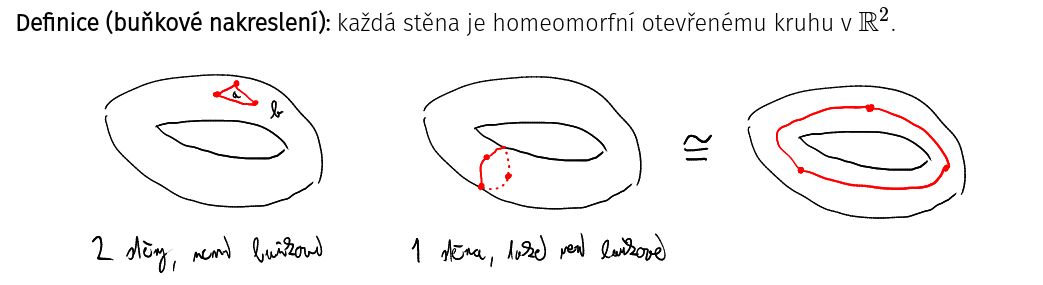 Definice (buňkové nakreslení): každá stěna je homeomorfní otevřenému kruhu v ℝ².
a
b
≅
2 stěny, není buňkové
1 stěna, také není buňkové